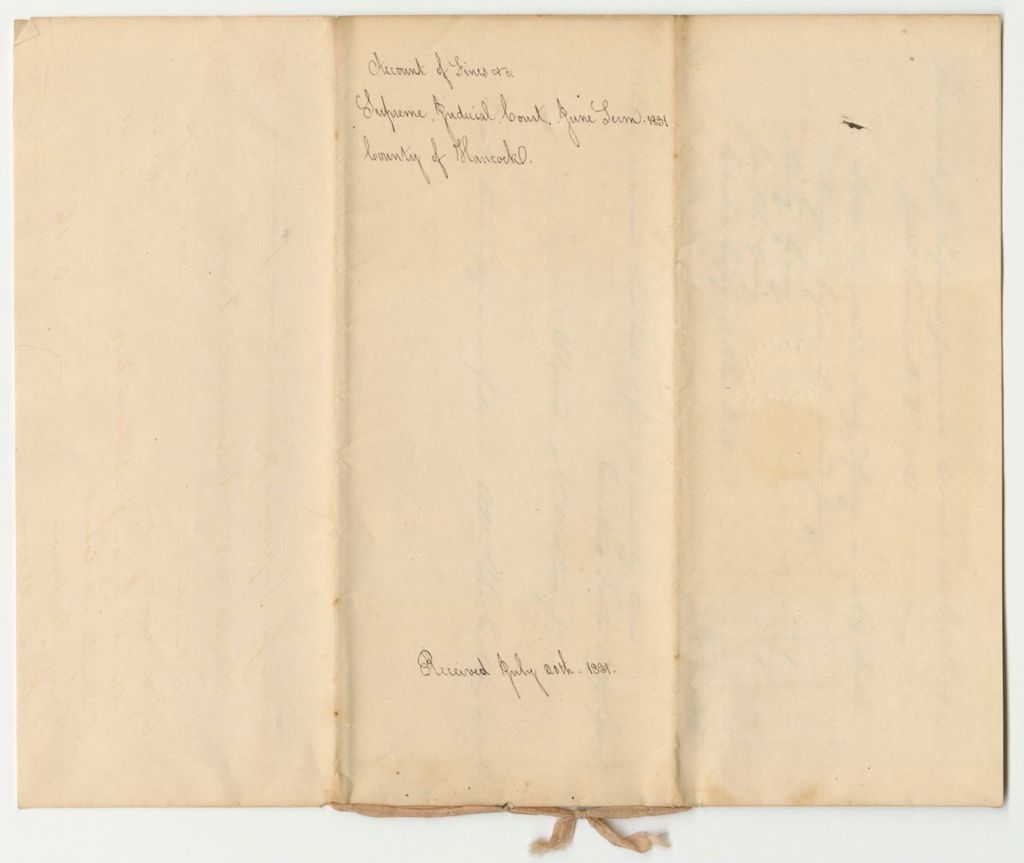 Account of Fines &c.
Supreme Judicial Court, June Term 1831
County of Hancock.
Received July 20th. 1831.